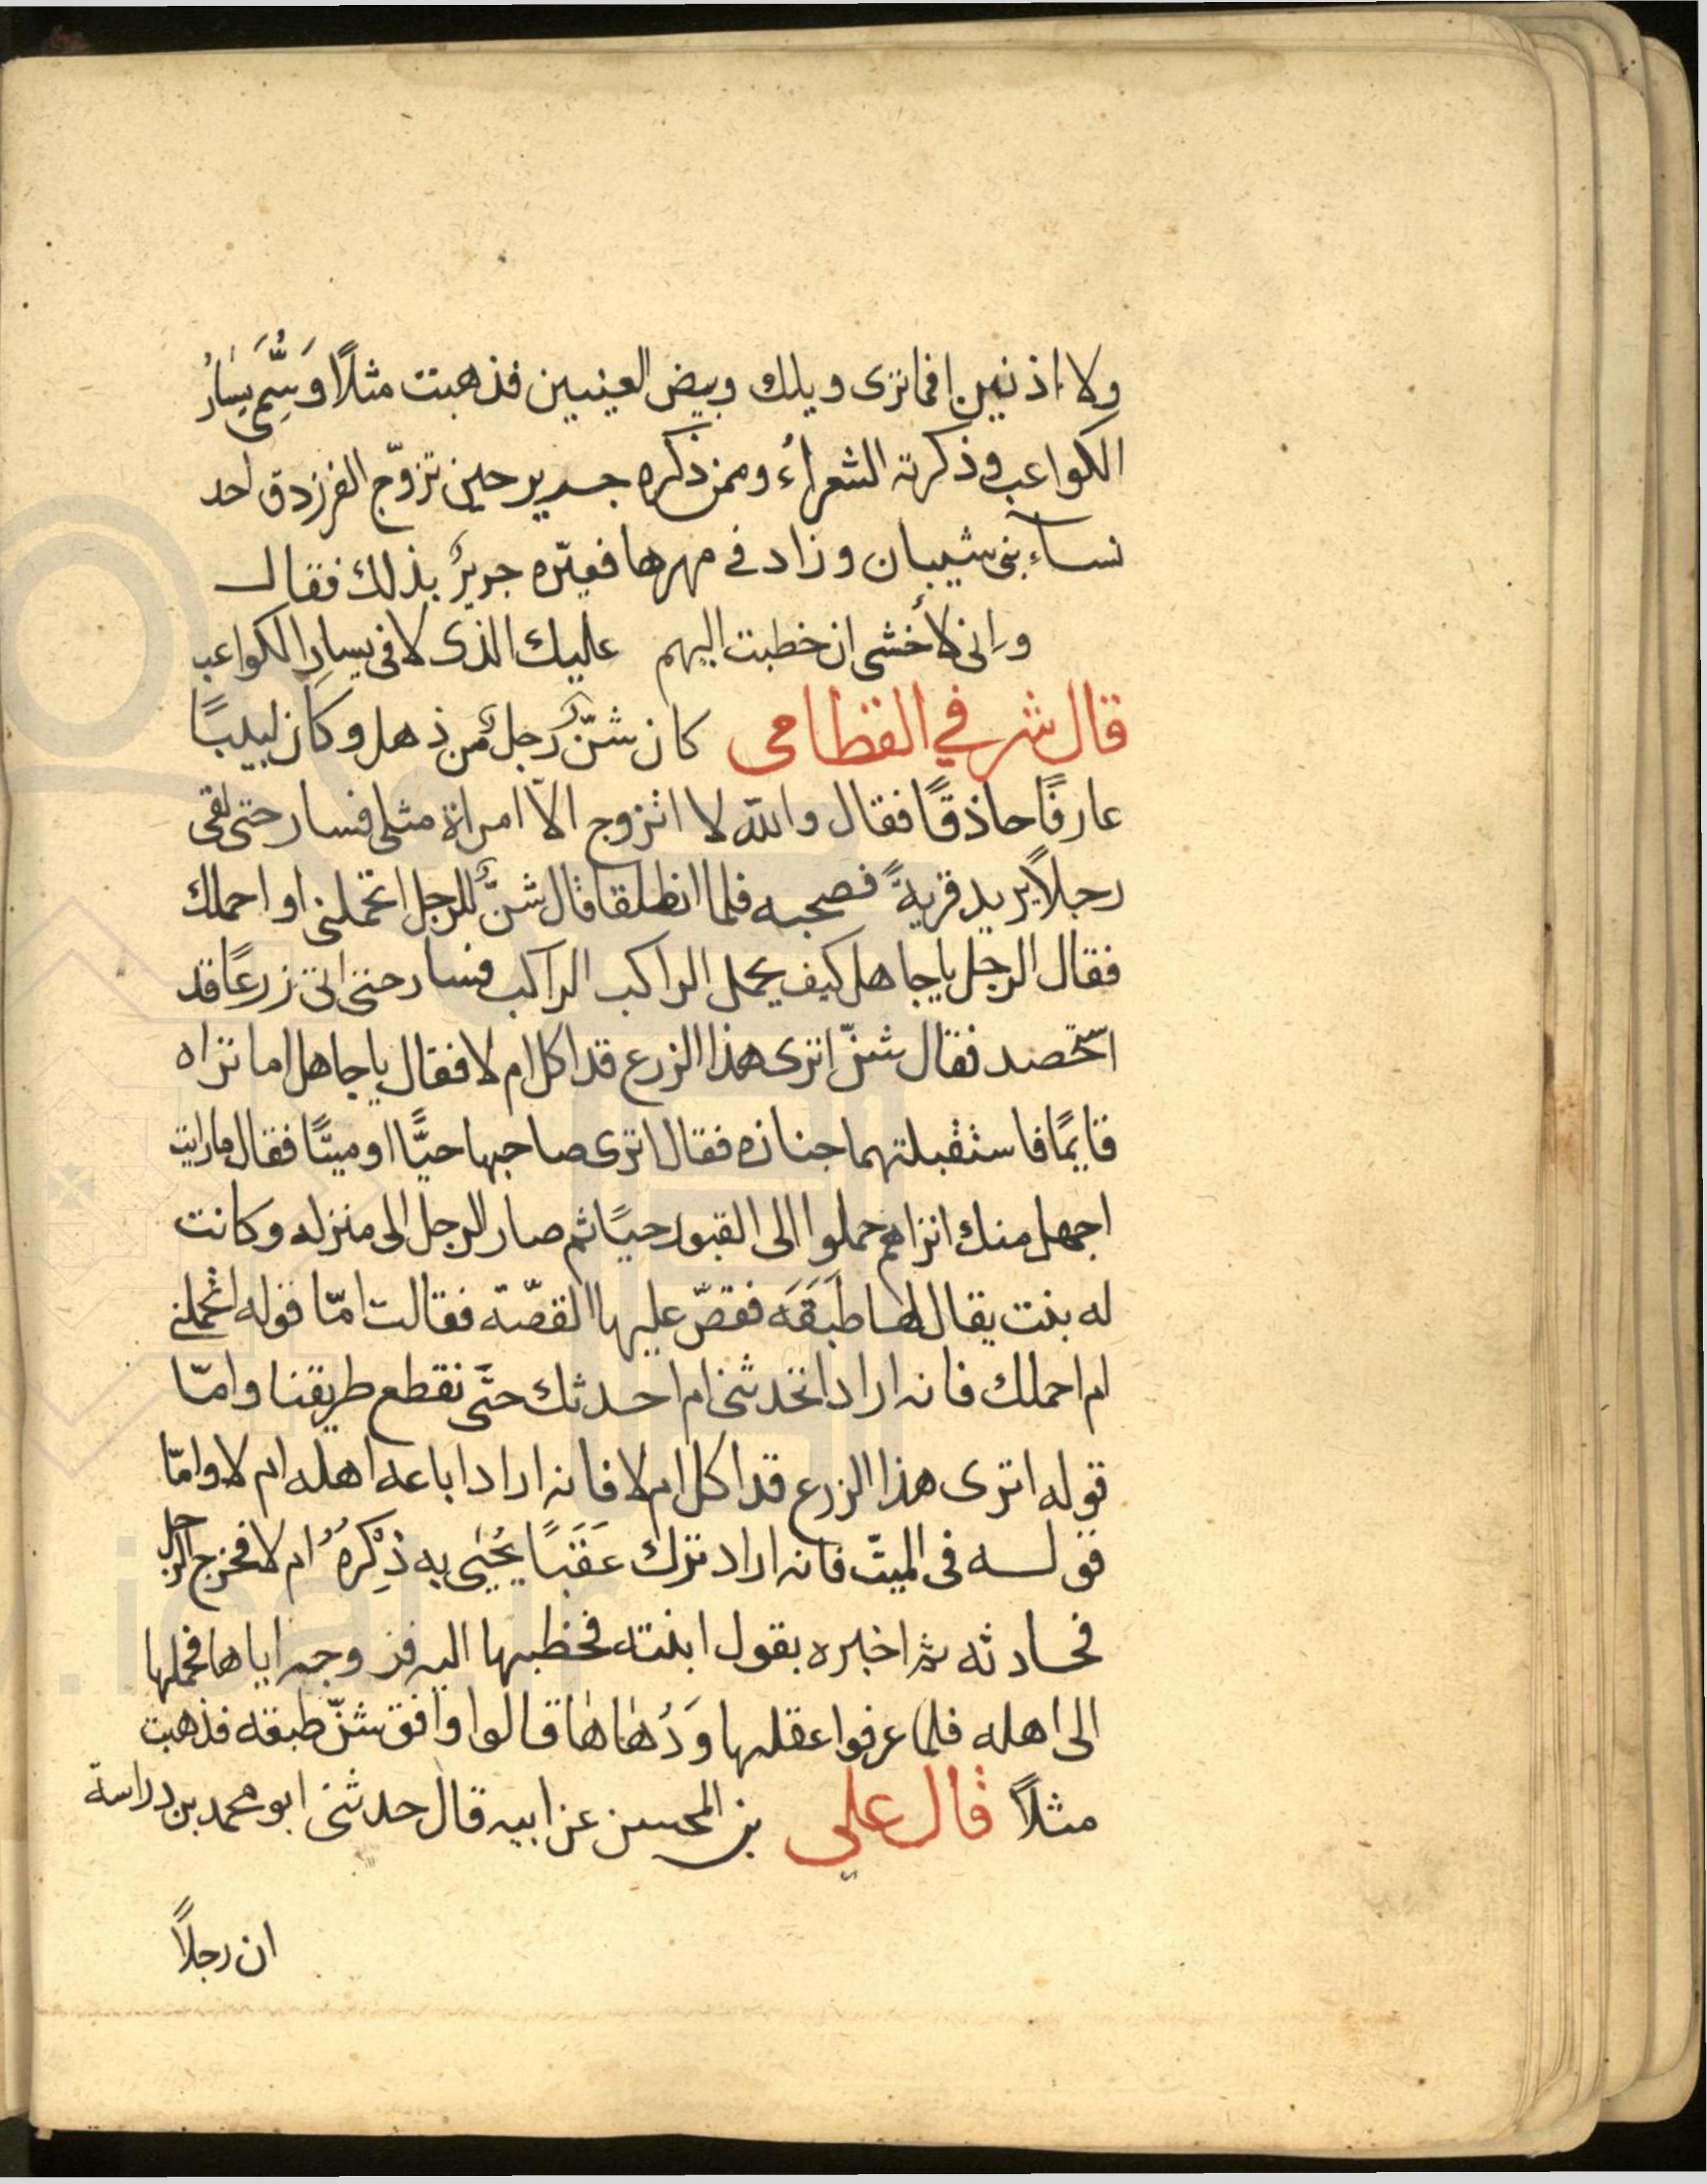 ولا اذنين افما ترى ويلك وبيض العينين فذهبت مثلًا وَسُمِّىَ يسَارُ
الكواعب وذكرته الشعراءُ وممن ذكره جرير حين تزوّج الفرزدق احد
نساء بنى شيبان وزاد فى مهرها فعيّره جريرٌ بذلك فقال
وانى لأخشى ان خطبت اليهم عليك الذى لاقى يسارِ الكواعب
قال شرفي القطامى كان شنٌّ رجلٌ من ذهل وكان لبيبًا
عارفًا حاذقًا فقال والله لا اتزوج الّا امراة مثلى فسار حتى لقى
رجلًا يريد قريةً فصحبه فلما انطلقا قال شنٌّ للرجل اتحملنى او احملك
فقال الرجل يا جاهل كيف يحمل الراكب الراكب فسار حتى اتى زرعًا قد
استحصد فقال شنّ اترى هذا الزرع قد اكل ام لا فقال يا جاهل اما تراه
قايمًا فاستقبلتهما جنازه فقال اترى صاحبها حيًّا او ميتًا فقال ما رايت
اجهل منك اتراهم حملوا الى القبور حيًا ثم صار الرجل الى منزله وكانت
له بنت يقال لها طَبَقَه فقصّ عليها القصّة فقالت امّا قوله اتحملنى
ام احملك فانه اراد اتحدثنى ام احدثك حتّى نقطع طريقنا وامّا
قوله اترى هذا الزرع قد اكل ام لا فانه اراد اباعه اهله ام لا وامّا
قوله فى الميت فانه اراد ترك عَقَبًا يُحيٰى به ذِكْرهُ ام لا فخرج الرجل
فحادثه ثم اخبره بقول ابنته فخطبها اليه فزوجه اياها فحملها
الى اهله فلما عرفوا عقلها وَدُهاها قالوا وافق شنّ طبقه فذهبت
مثلًا قال علي بن المحسن عن ابيه قال حدثنى ابو محمد بن دراسة
ان رجلًا